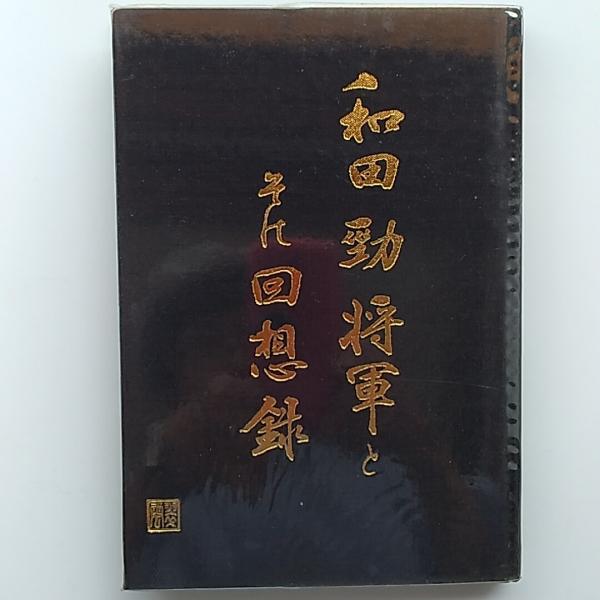 和田勁将軍と
その回想録